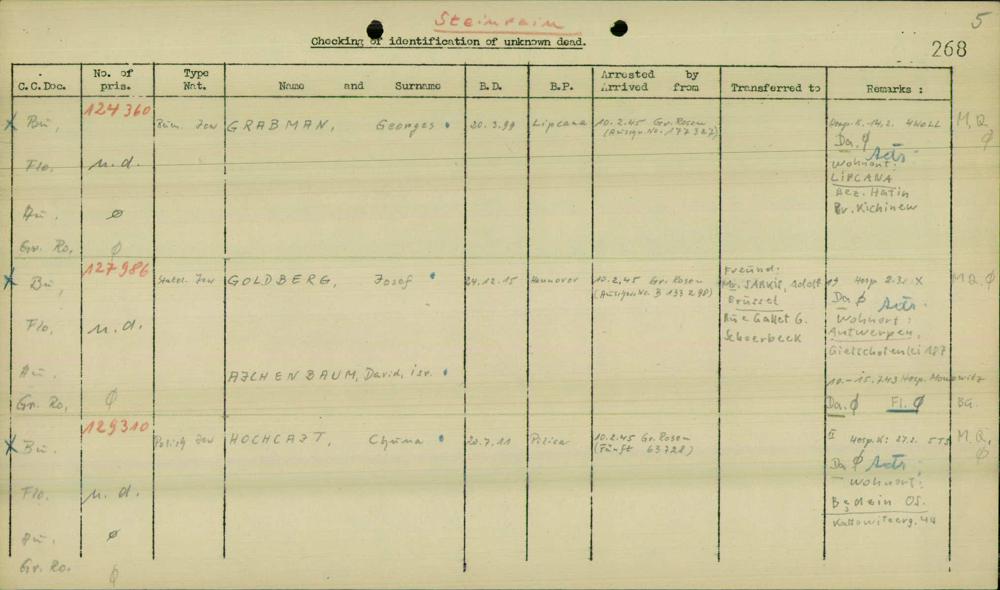 Steinrain
5
Checking of identification of unknown dead.
268
C.C.Doc. No. of pris. Type Nat. Name and Surname B.D. B.P. Arrested by Arrived from Transferred to Remarks :
124360
x Bu, Rum. Jew GRABMAN, Georges 20.3.99 Lipcana 10.2.45 Gr. Rosen Hosp. K. 14.2. M, Q
(Ausgn. No. 177327) Da. ø ø
Flo, n. d. Acts
Wohnort:
LIPCANA
Bez. Hatin
Au. ø Br. Kichinew
Gr. Ro, ø
127986
x Bu, Jew GOLDBERG, Josef 24.12.15 Hannover 10.2.45 Gr. Rosen Freund: Hosp 2.3. X M. Q. ø
(Ausgn. No. B 133298) Mr. SARKIS, Adolf Da ø Acts
Brüssel Wohnort:
Flo, n. d. Rue Gallet 6. Antwerpen,
Schaerbeek 187
Au. AJCHENBAUM, David, isr. Hosp. Monowitz
Gr. Ro, ø Da. ø Fl. ø
129310
x Bu. Polish Jew HOCHCAJT, Chuna 20.7.11 10.2.45 Gr. Rosen Hosp. K: 27.2. M. Q,
63728) Da ø Acts ø
Wohnort:
Flo. n. d. Bendzin OS.
44
Au. ø
Gr. Ro. ø